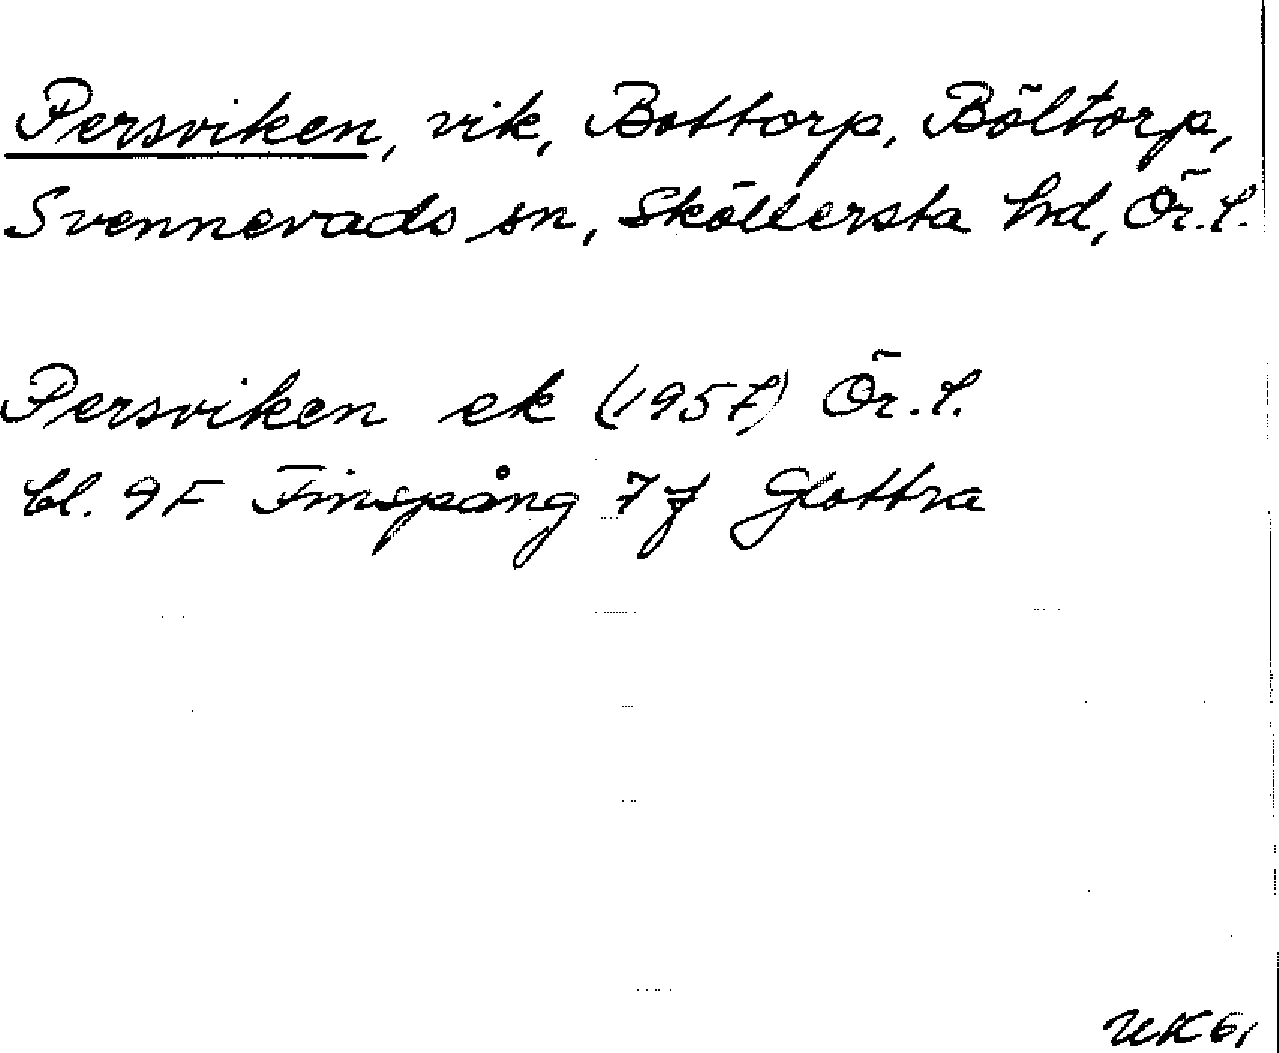 Persviken, vik, Bottorp, Böltorp,
Svennevads sn, Sköllersta hd, Ör. l.
Persviken ek (1957) Ör. l.
bl. 9F Finspång 7 f Glottra
UK 61